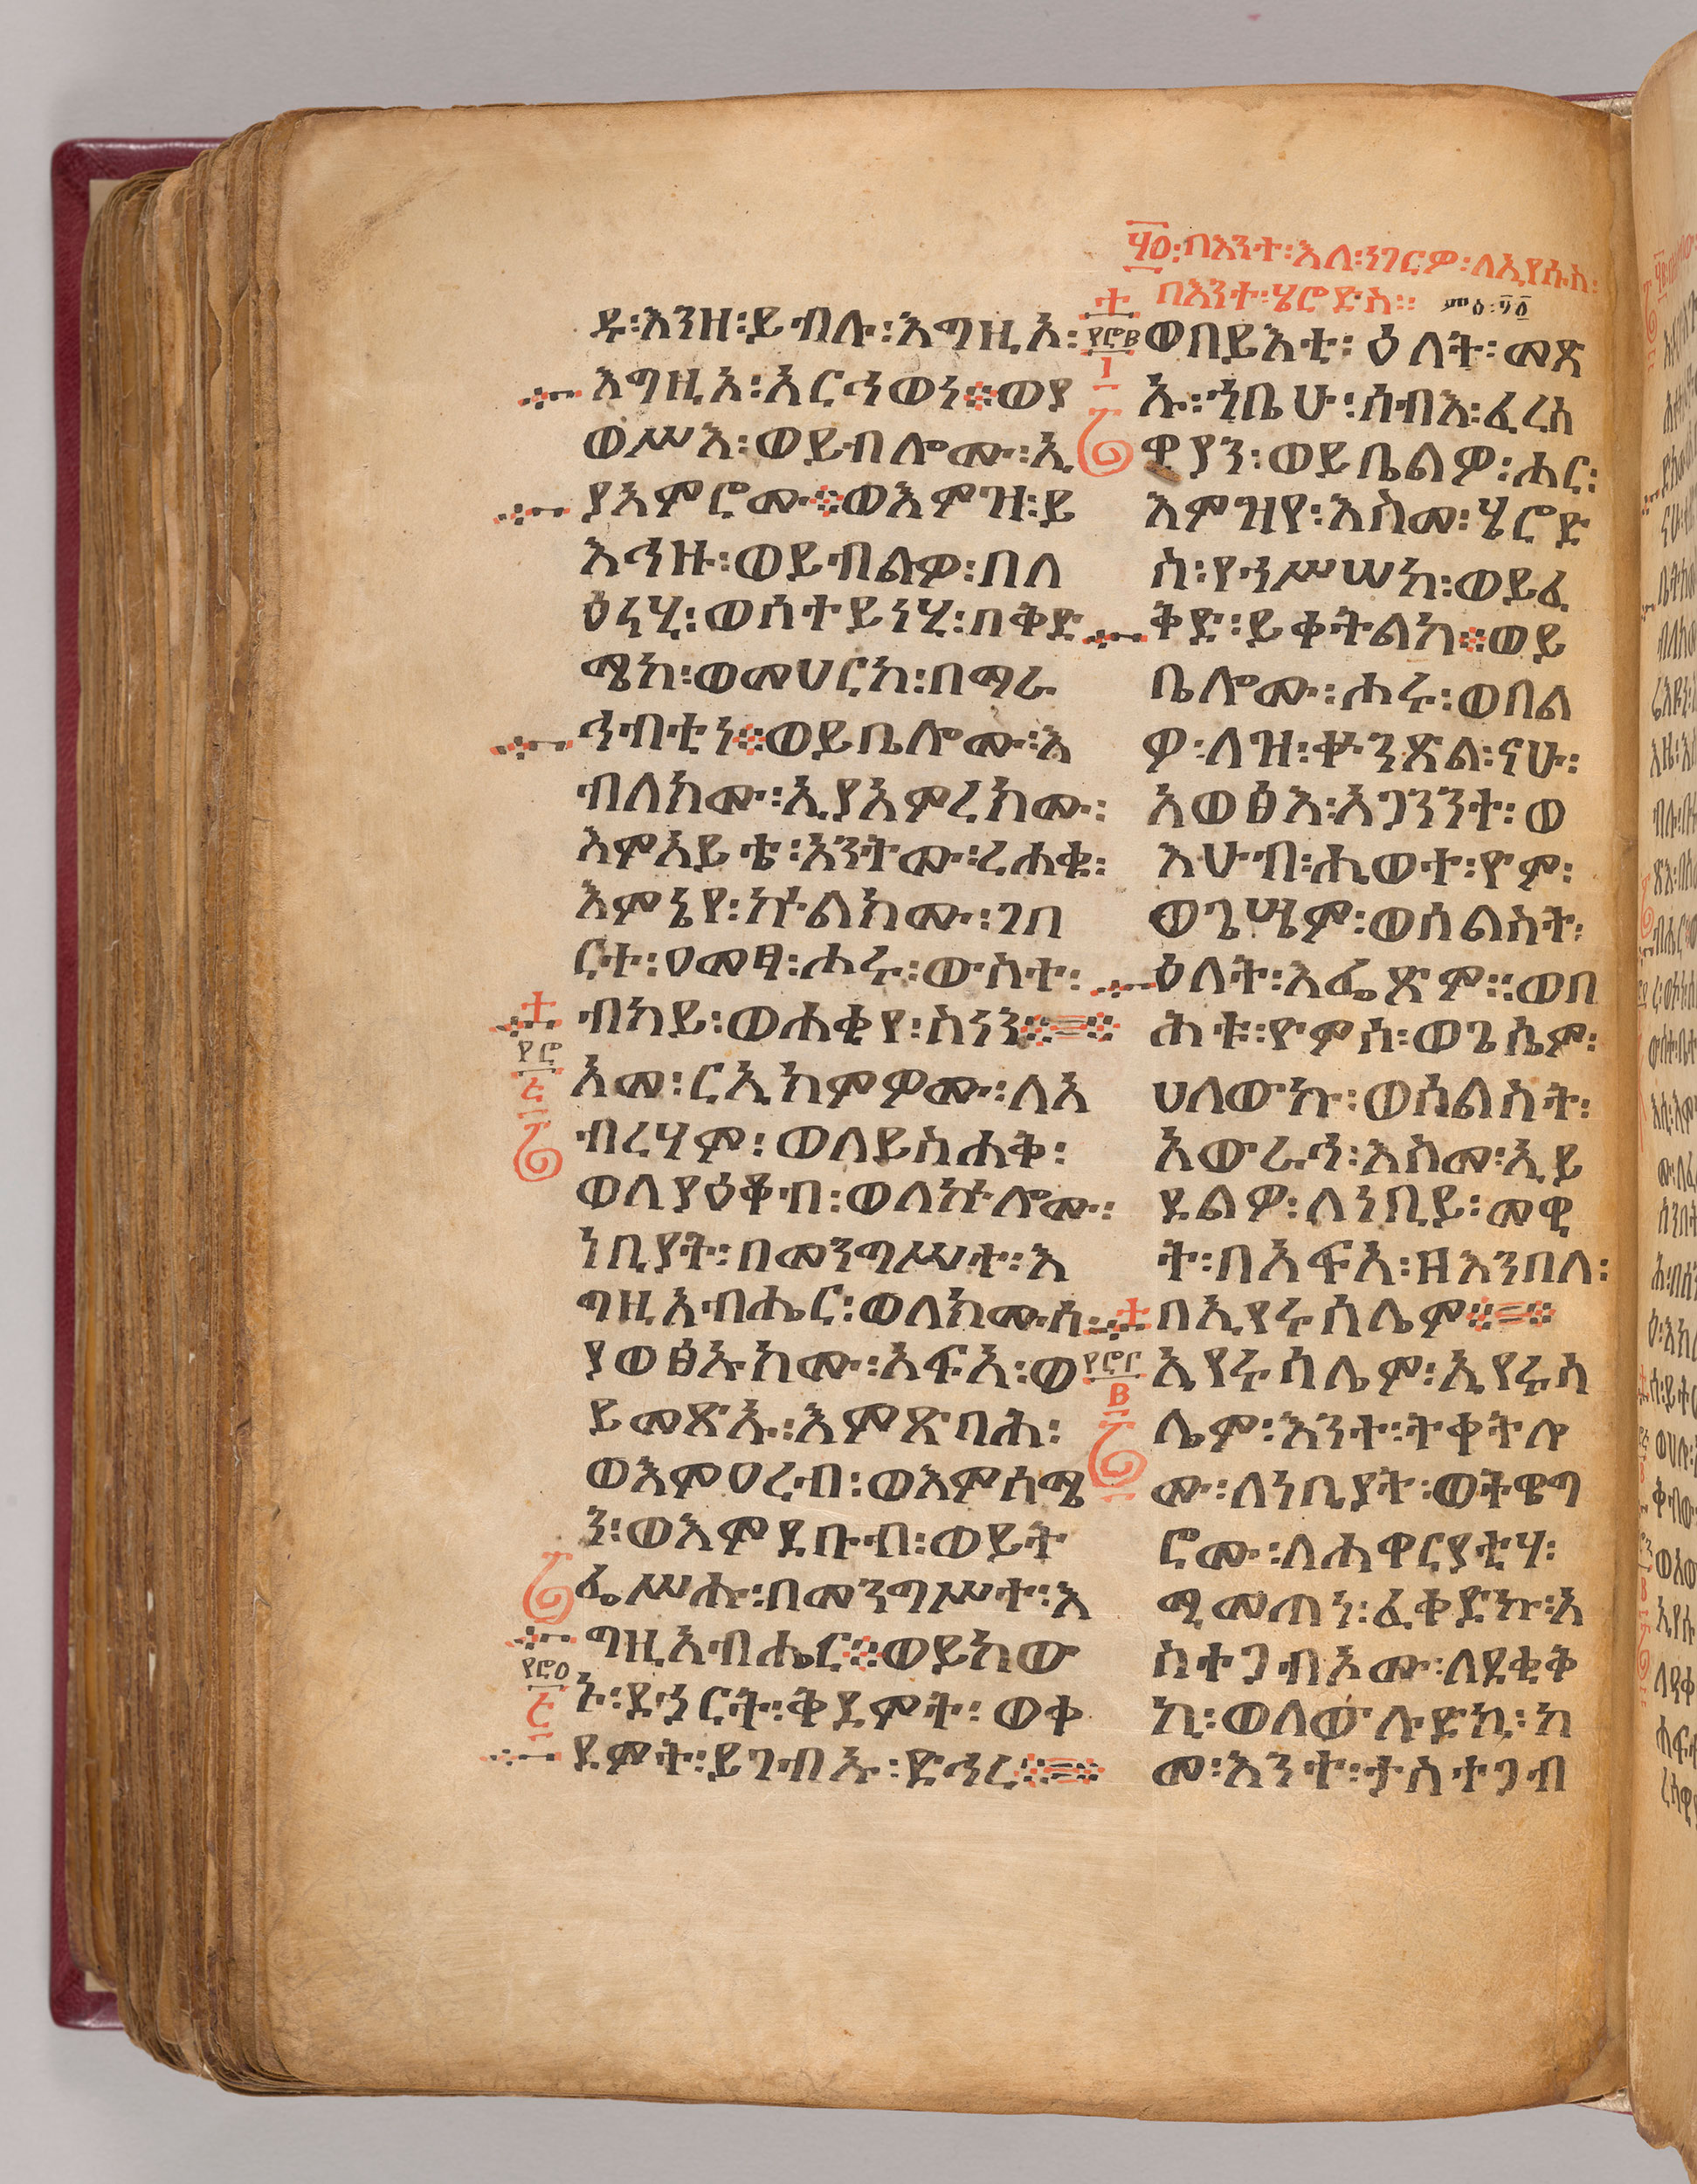 ዱ፡እንዘ፡ይብሉ፡እግዚኦ፡
እግዚኦ፡አርኅወነ፨ወያ
ወሥእ፡ወይብሎሙ፡ኢ
ያአምሮሙ፨ወእምዝ፡ይ
እኅዙ፡ወይብልዎ፡በለ
ዕነሂ፡ወሰተይነሂ፡በቅድ
ሜከ፡ወመሀርከ፡በማራ
ኅብቲነ፨ወይቤሎሙ፡እ
ብለክሙ፡ኢያአምረክሙ፡
እምአይቴ፡አንትሙ፡ረሐቁ፡
እምኔየ፡ኵልክሙ፡ገበ
ርተ፡ዐመፃ፡ሐሩ፡ውስተ፡
ብካይ፡ወሐቂየ፡ስነን፨
አመ፡ርኢክምዎሙ፡ለአ
ብረሃም፡ወለይስሐቅ፡
ወለያዕቆብ፡ወለኵሎሙ፡
ነቢያት፡በመንግሥተ፡እ
ግዚአብሔር፡ወለክሙሰ፡
ያወፅኡክሙ፡አፍአ፡ወ
ይመጽኡ፡እምጽባሕ፡
ወእምዐረብ፡ወእምሰሜ
ን፡ወእምደቡብ፡ወይት
ፌሥሑ፡በመንግሥተ፡እ
ግዚአብሔር፨ወይከው
ኑ፡ደኃርት፡ቅደምት፡ወቀ
ደምት፡ይገብኡ፡ድኅረ፨
፶፬፡በእንተ፡እለ፡ነገርዎ፡ለኢየሱስ፡
በእንተ፡ሄሮድስ፡፡
ወበይእቲ፡ዕለት፡መጽ
ኡ፡ኀቤሁ፡ሰብእ፡ፈረስ
ዋያን፡ወይቤልዎ፡ሐር፡
እምዝየ፡እስመ፡ሄሮድ
ስ፡የኅሥሠከ፡ወይፈ
ቅድ፡ይቀትልከ፨ወይ
ቤሎሙ፡ሐሩ፡ወበል
ዎ፡ለዝ፡ቍንጽል፡ናሁ፡
አወፅእ፡አጋንንተ፡ወ
እሁብ፡ሒወተ፡ዮም፡
ወጌሤም፡ወሰልስት፡
ዕለት፡እፌጽም፡፡ወበ
ሕቱ፡ዮምሰ፡ወጌሴም፡
ሀለውኩ፡ወሰልስት፡
አውራኅ፡እስመ፡ኢይ
ደልዎ፡ለነቢይ፡መዊ
ት፡በአፍአ፡ዘእንበለ፡
በኢየሩሰሌም፨
ኢየሩሳሌም፡ኢየሩሳ
ሌም፡እንተ፡ትቀትሎ
ሙ፡ለነቢያት፡ወትዌግ
ሮሙ፡ለሐዋርያቲሃ፡
ሚመጠነ፡ፈቀድኩ፡አ
ስተጋብኦሙ፡ለደቂቅ
ኪ፡ወለውሉድኪ፡ከ
መ፡እንተ፡ታስተጋብ